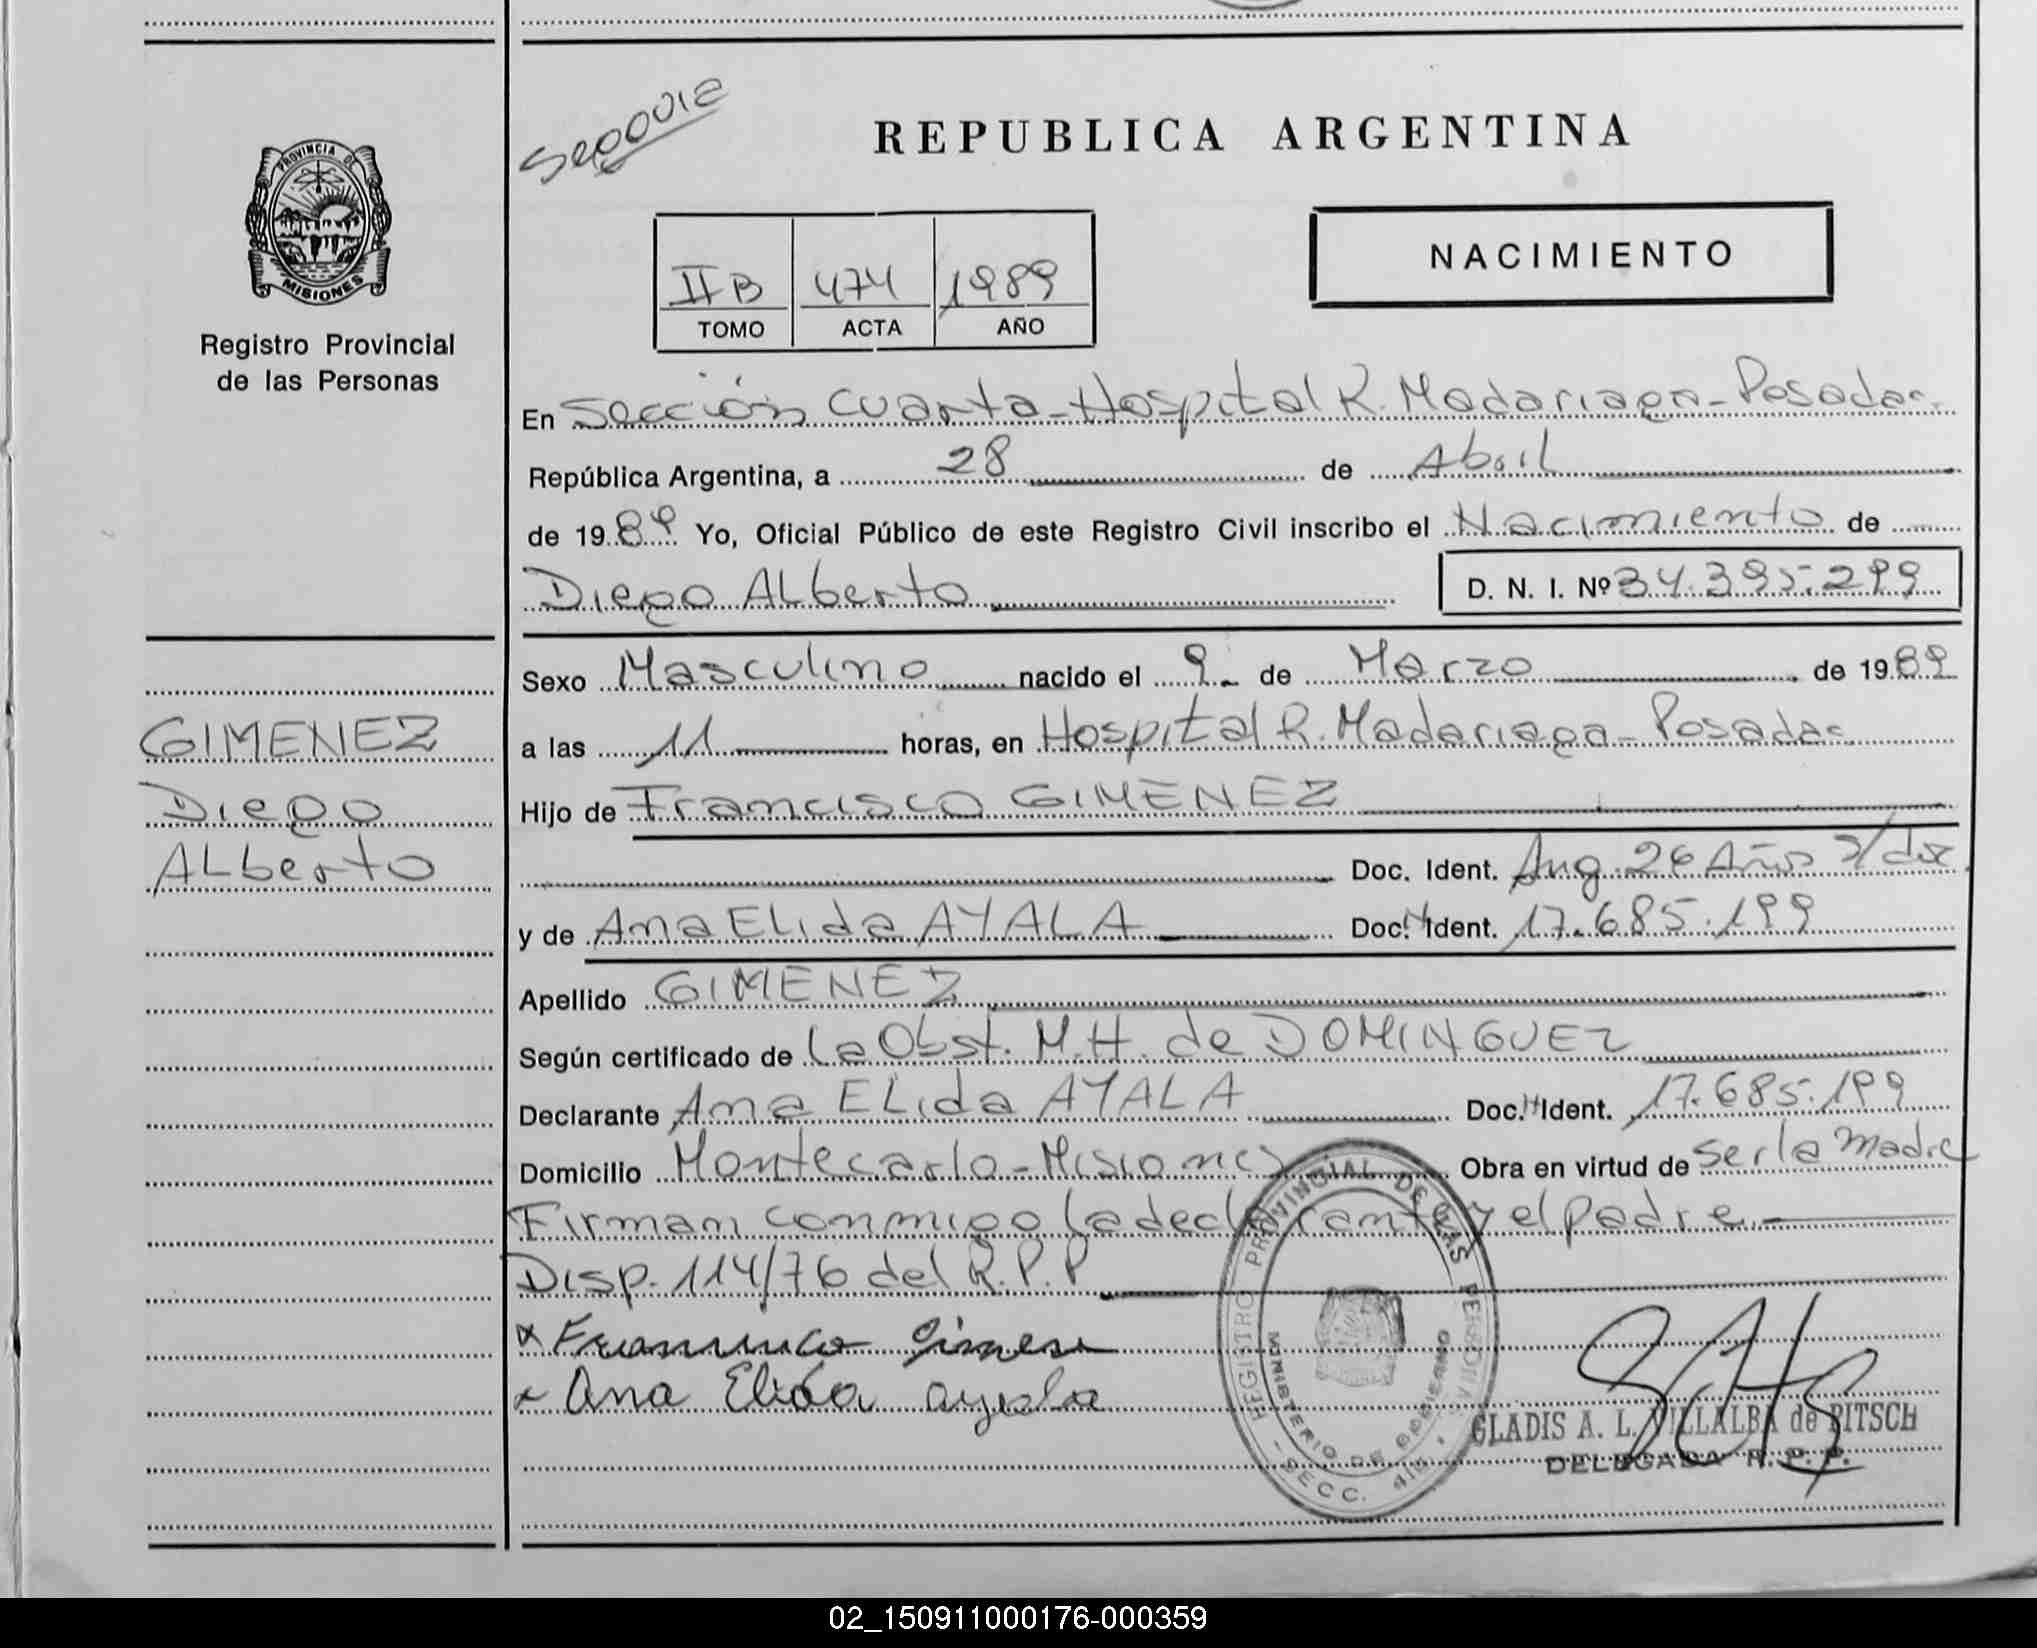 Segovia
REPUBLICA ARGENTINA
PROVINCIA DE
MISIONES
Registro Provincial
de las Personas
NACIMIENTO
II B 474 1989
TOMO ACTA AÑO
En Sección Cuarta - Hospital R. Madariaga - Posadas.
República Argentina, a 28 de Abril
de 1989 Yo, Oficial Público de este Registro Civil inscribo el Nacimiento de
Diego ALberto D. N. I. Nº 34.395.299
Sexo Masculino nacido el 9 de Marzo de 1989
GIMENEZ
Diego
ALberto
a las 11 horas, en Hospital R. Madariaga - Posadas
Hijo de Francisco GIMENEZ
Doc. Ident. Arg. 26 Años
y de Ana ELida AYALA Doc. Ident. 17.685.199
Apellido GIMENEZ
Según certificado de La Obst. M.H. de DOMINGUEZ
Declarante Ana ELida AYALA Doc. Ident. 17.685.199
Domicilio Montecarlo - Misiones Obra en virtud de ser la madre
Firman conmigo la declarante y el padre. -
Disp. 114/76 del R.P.P
x Francisco Gimenez
x Ana Elida ayala
REGISTRO PROVINCIAL DE LAS PERSONAS
MINISTERIO DE GOBIERNO
- SECC. 4ta. -
GLADIS A. L. VILLALBA de PITSCH
DELEGADA R. P. P.
02_150911000176-000359